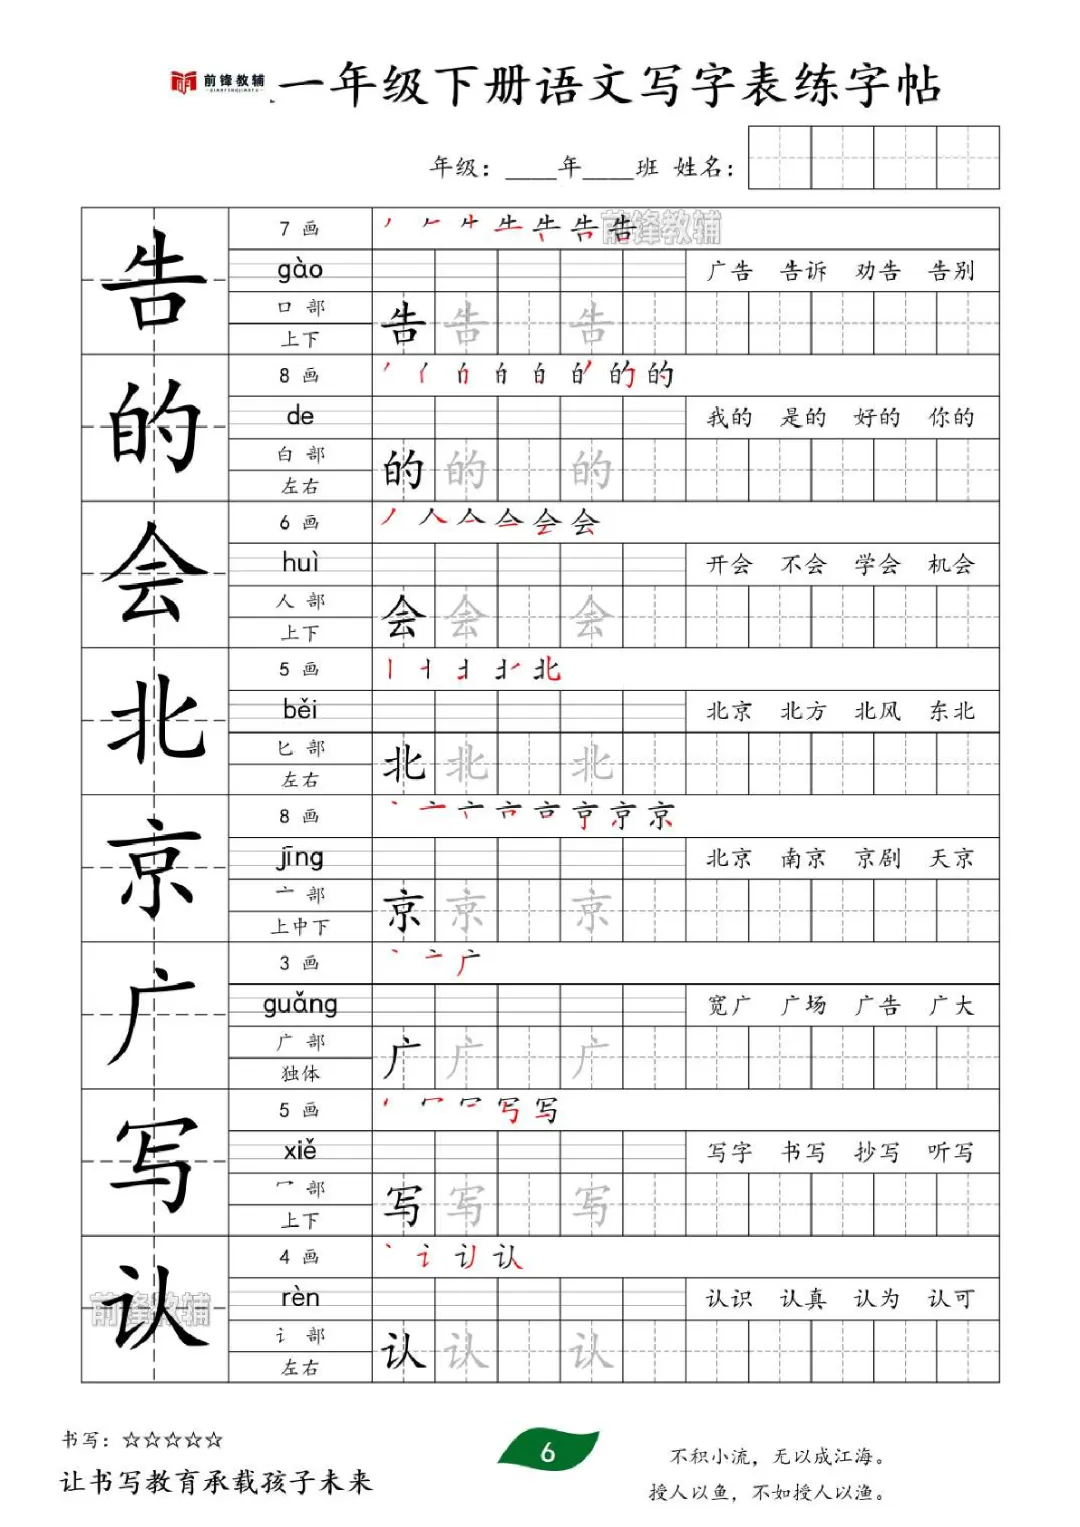 前锋教辅
QIANFENGJIAOFU
一年级下册语文写字表练字帖
年级：____年____班 姓名：
告
7 画
前锋教辅
gào
广告 告诉 劝告 告别
口 部
告 告 告
上下
的
8 画
de
我的 是的 好的 你的
白 部
的 的 的
左右
会
6 画
huì
开会 不会 学会 机会
人 部
会 会 会
上下
北
5 画
běi
北京 北方 北风 东北
匕 部
北 北 北
左右
京
8 画
jīng
北京 南京 京剧 天京
亠 部
京 京 京
上中下
广
3 画
guǎng
宽广 广场 广告 广大
广 部
广 广 广
独体
写
5 画
xiě
写字 书写 抄写 听写
冖 部
写 写 写
上下
认
4 画
rèn
认识 认真 认为 认可
前锋教辅
讠 部
认 认 认
左右
书写：☆☆☆☆☆
让书写教育承载孩子未来
6
不积小流，无以成江海。
授人以鱼，不如授人以渔。